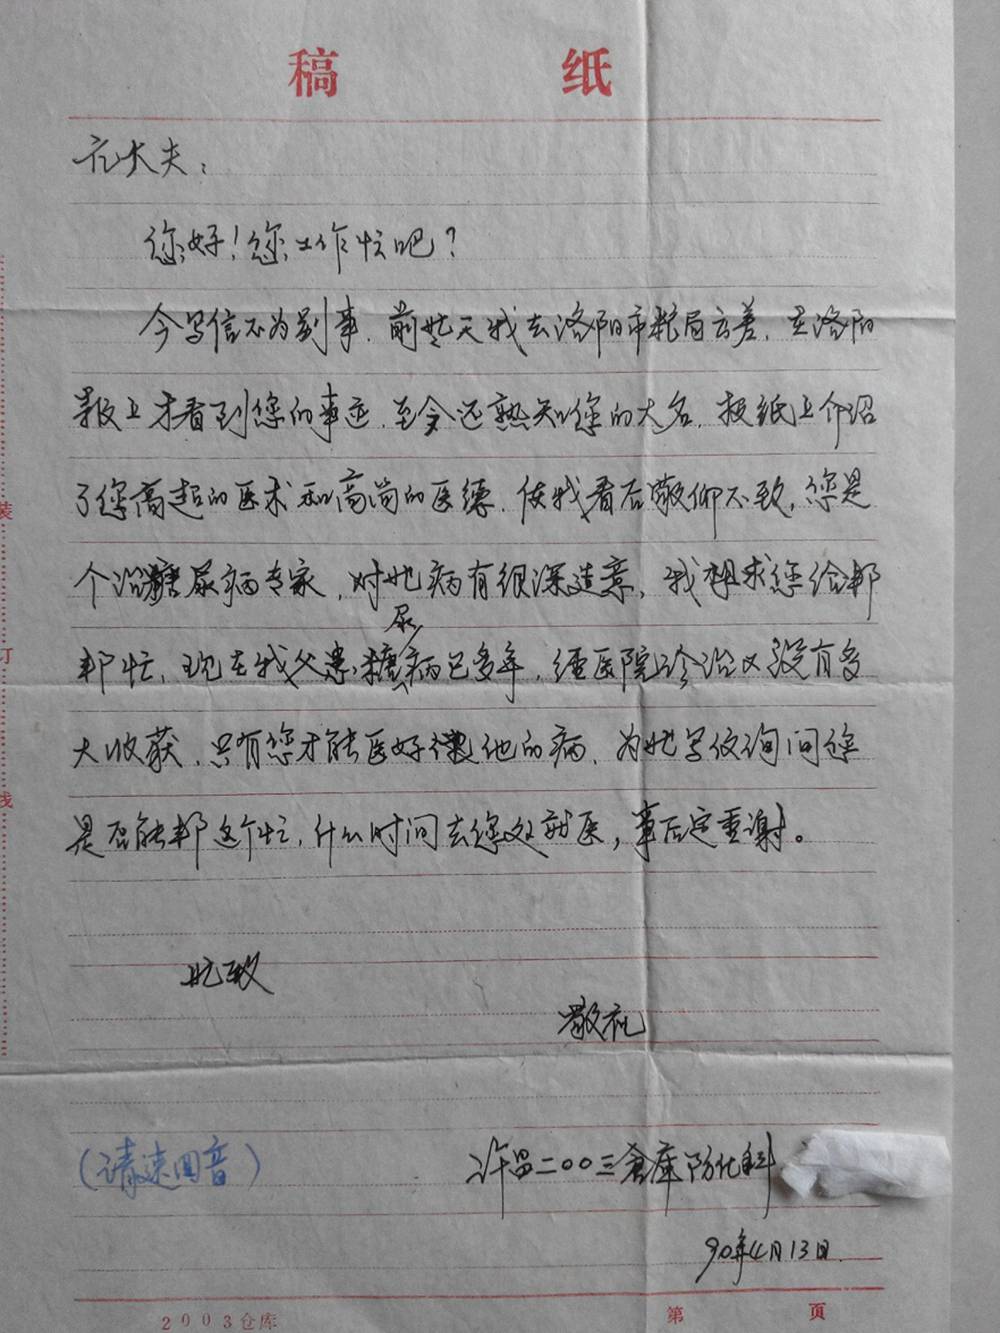 稿 纸
亢大夫:
您好!您工作忙吧?
今写信不为别事.前些天我去洛阳市粮局出差.在洛阳
报上才看到您的事迹.至今还熟知您的大名.报纸上介绍
了您高超的医术和高尚的医德.使我看后敬仰不致,您是
个治糖尿病专家,对此病有很深造意,我想求您给邦
邦忙,现在我父患糖尿病已多年,经医院诊治又没有多
大收获.只有您才能医好他的病.为此写仪询问您
是否能邦这个忙,什么时间去您处就医,事后定重谢。
此致
敬礼
(请速回音)
许昌二〇〇三仓库防化科
90年4月13日.
装
订
线
2003仓库 第 页